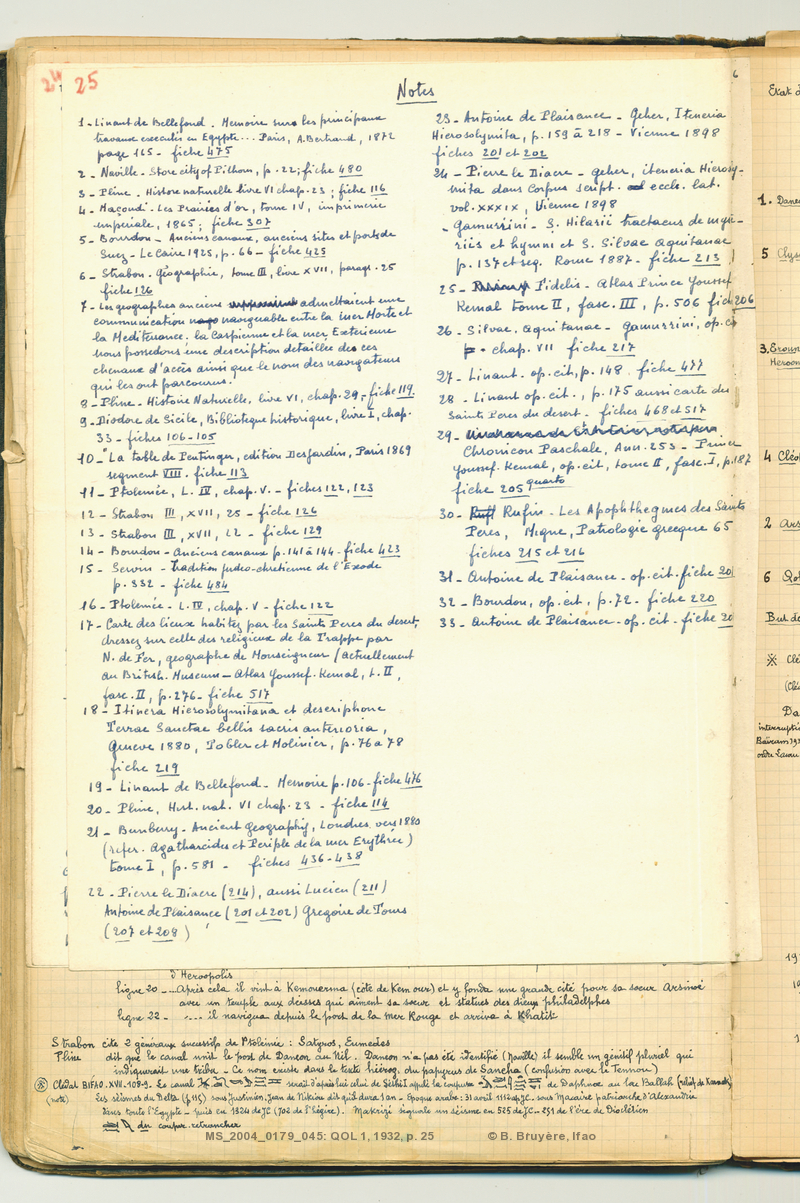 25
Notes
1 - Linant de Bellefond. Memoire sur les principaux
travaux executés en Egypte... Paris, A. Bertrand, 1872
page 165 - fiche 475
2 - Naville - Store city of Pithom, p. 22; fiche 480
3 - Pline. Histoire naturelle livre VI chap. 23; fiche 116
4 - Maçoudi. Les Prairies d'or, tome IV, imprimerie
imperiale, 1865; fiche 307
5 - Bourdon - Anciens canaux, anciens sites et ports de
Suez - Le Caire 1925, p. 66 - fiche 425
6 - Strabon. Géographie, tome III, livre XVII, parag. 25
fiche 126
7 - Les geographes anciens admettaient une
communication navigeable entre la mer Morte et
la Mediteranee. la Caspienne et la mer Exterieure
nous possedons une description detaillée de ces
chenaux d'accès ainsi que le nom des navigateurs
qui les ont parcourus.
8 - Pline - Histoire Naturelle, livre VI, chap. 29 - fiche 119.
9 - Diodore de Sicile, Bibliotheque historique, livre I, chap.
33 - fiches 106-105
10 - "La table de Peutinger, edition Desjardin, Paris 1869
segment VIII. fiche 113
11 - Ptolemée, L. IV, chap. V. - fiches 122, 123
12 - Strabon III, XVII, 25 - fiche 126
13 - Strabon III, XVII, 22 - fiche 129
14 - Bourdon - Anciens canaux p. 141 à 144 - fiche 423
15 - Servin - Tradition judeo-chretienne de l'Exode
p. 332 - fiche 484
16 - Ptolemée - L. IV, chap. V - fiche 122
17 - Carte des lieux habitez par les Saints Peres du desert,
dressez sur celle des religieux de la Trappe par
N. de Fer, geographe de Monseigneur (Actuellement
au British Museum - Atlas Youssef. Kemal, t. II,
fasc. II, p. 276 - fiche 517
18 - Itinera Hierosolymitana et descriphone
Terrae Sanctae bellis sacris anterioria,
Geneve 1880, Tobler et Molinier, p. 76 a 78
fiche 219
19 - Linant de Bellefond - Memoire p. 106 - fiche 476
20 - Pline, Hist. nat. VI chap. 23 - fiche 114
21 - Bunbury - Ancient Geography, Londres vers 1880
(refer. Agatharcides et Periple de la mer Erythrée)
tome I, p. 581 - fiches 436-438
22 - Pierre le Diacre (214), aussi Lucien (211)
Antoine de Plaisance (201 et 202) Gregoire de Tours
(207 et 208)
23 - Antoine de Plaisance - Geher, Iteneria
Hierosolymita, p. 159 à 218 - Vienne 1898
fiches 201 et 202
24 - Pierre le Diacre - geher, iteneria Hierosy-
mita dans Corpus script. eccle. lat.
vol. XXXIX, Vienne 1898
- Gamurrini - S. Hilarii tractacus de myste-
riis et hymni et S. Silvae Aquitanae
p. 137 et seq. Rome 1887 - fiche 213
25 - Fidelis - Atlas Prince Youssef
Kemal tome II, fasc. III, p. 506 fiche 206
26 - Silvae Aquitanae - Gamurrini, op. cit
chap. VII fiche 217
27 - Linant. op. cit, p. 148. fiche 477
28 - Linant op. cit., p. 175 aussi carte des
Saints Peres du desert - fiches 468 et 517
29 -
Chronicon Paschale, Ann. 253 - Prince
Youssef. Kemal, op. cit, tome II, fasc. I, p. 187
fiche 205 quarto
30 - Rufin - Les Apophthegmes des Saints
Peres, Migne, Patrologie grecque 65
fiches 215 et 216
31 - Antoine de Plaisance - op. cit. fiche 201
32 - Bourdon, op. cit, p. 72 - fiche 220
33 - Antoine de Plaisance - op. cit - fiche 20
d'Heroopolis
ligne 20 - ... Après cela il vint à Kemouerma (côté de Kem our) et y fonda une grande cité pour sa soeur Arsinoé
avec un temple aux déesses qui aiment sa soeur et statues des dieux philadelphes
ligne 22 - .... il navigua depuis le port de la mer Rouge et arriva à Khatit
Strabon cite 2 généraux successifs de Ptolémée : Satyros, Eumedes
Pline dit que le canal unit le port de Daneon au Nil. Daneon n'a pas été identifié (Naville) il semble un génitif pluriel qui
indiquerait une tribu - Ce nom existe dans le texte hiérog. du papyrus de Saneha (confusion avec le Tennou)
Clédat BIFAO. XVII. 108-9. Le canal serait d'après lui celui de Séthi I appelé la coupure de Daphnae au lac Ballah (relief de Karnak)
(note) Les séismes du Delta (p 115) sous Justinien, Jean de Nikiou dit qu'il dura 1 an - Epoque arabe : 31 avril 1112 ap. JC. sous Macaire patriarche d'Alexandrie
Dans toute l'Egypte - puis en 1324 de JC (702 de l'hégire). Makrizi signale un séisme en 525 de JC - 251 de l'ère de Dioclétien
du couper. retrancher
MS_2004_0179_045: QOL 1, 1932, p. 25 © B. Bruyère, Ifao
6
Etat
1. Dane
5 Clys
3. Eroum
Heroon
4 Cléo
2 Ars
6 Qol
But de
(Clé
Da
interrupti
Baïram